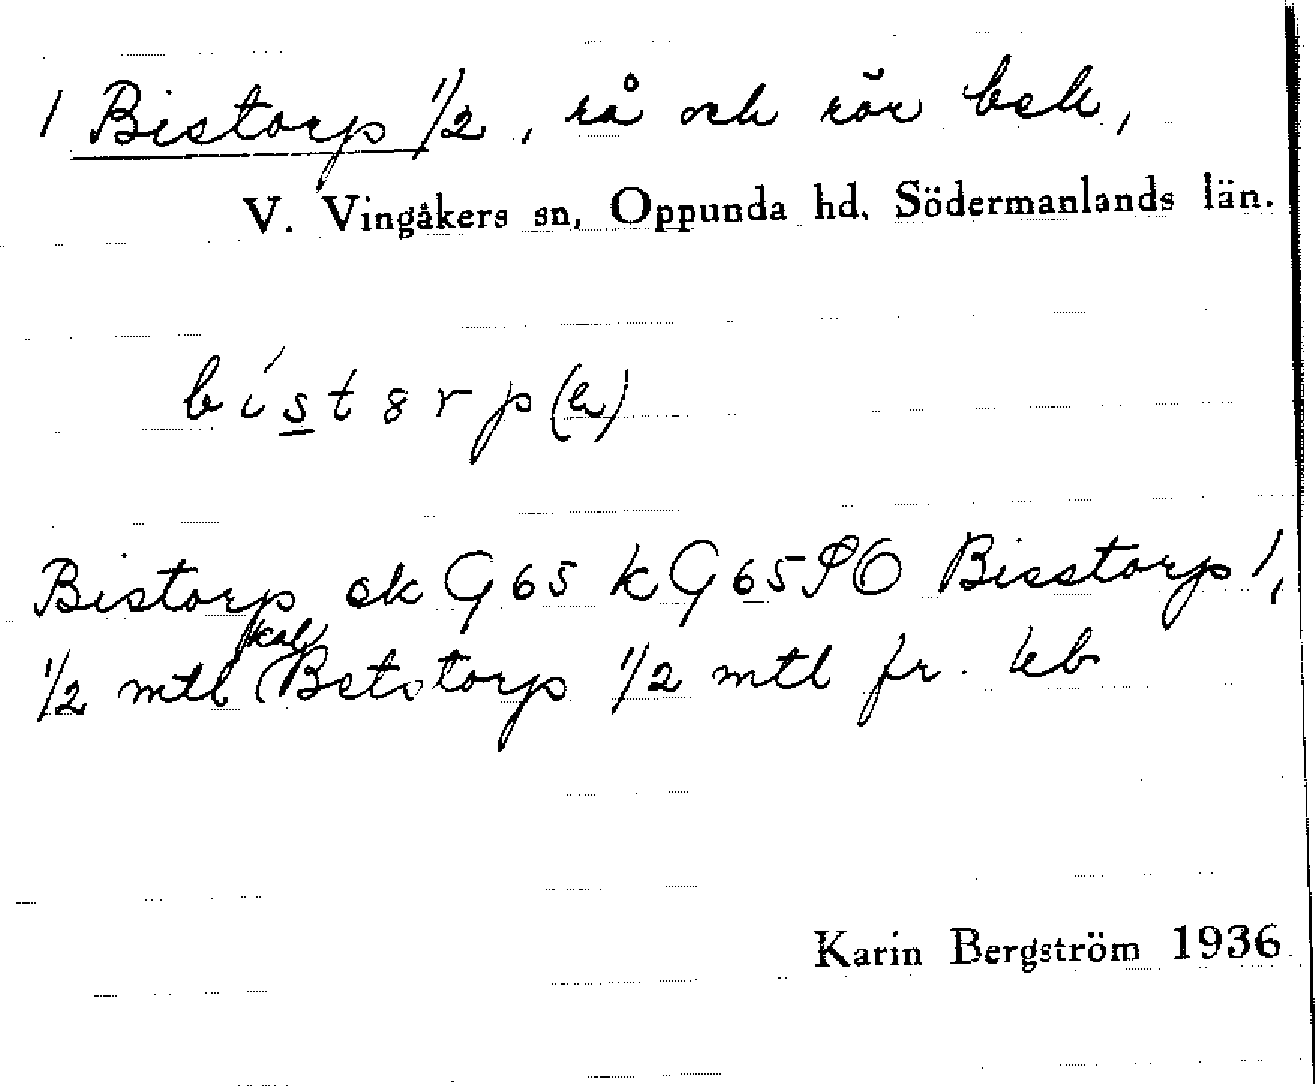 1 Bistorp 1/2, rå och rör bek,
V. Vingåkers sn, Oppunda hd. Södermanlands län.
bístȣrp(en)
Bistorp ek G65 kG65SO Bisstorp 1,
1/2 mtl (kal Betstorp 1/2 mtl fr. kb
Karin Bergström 1936